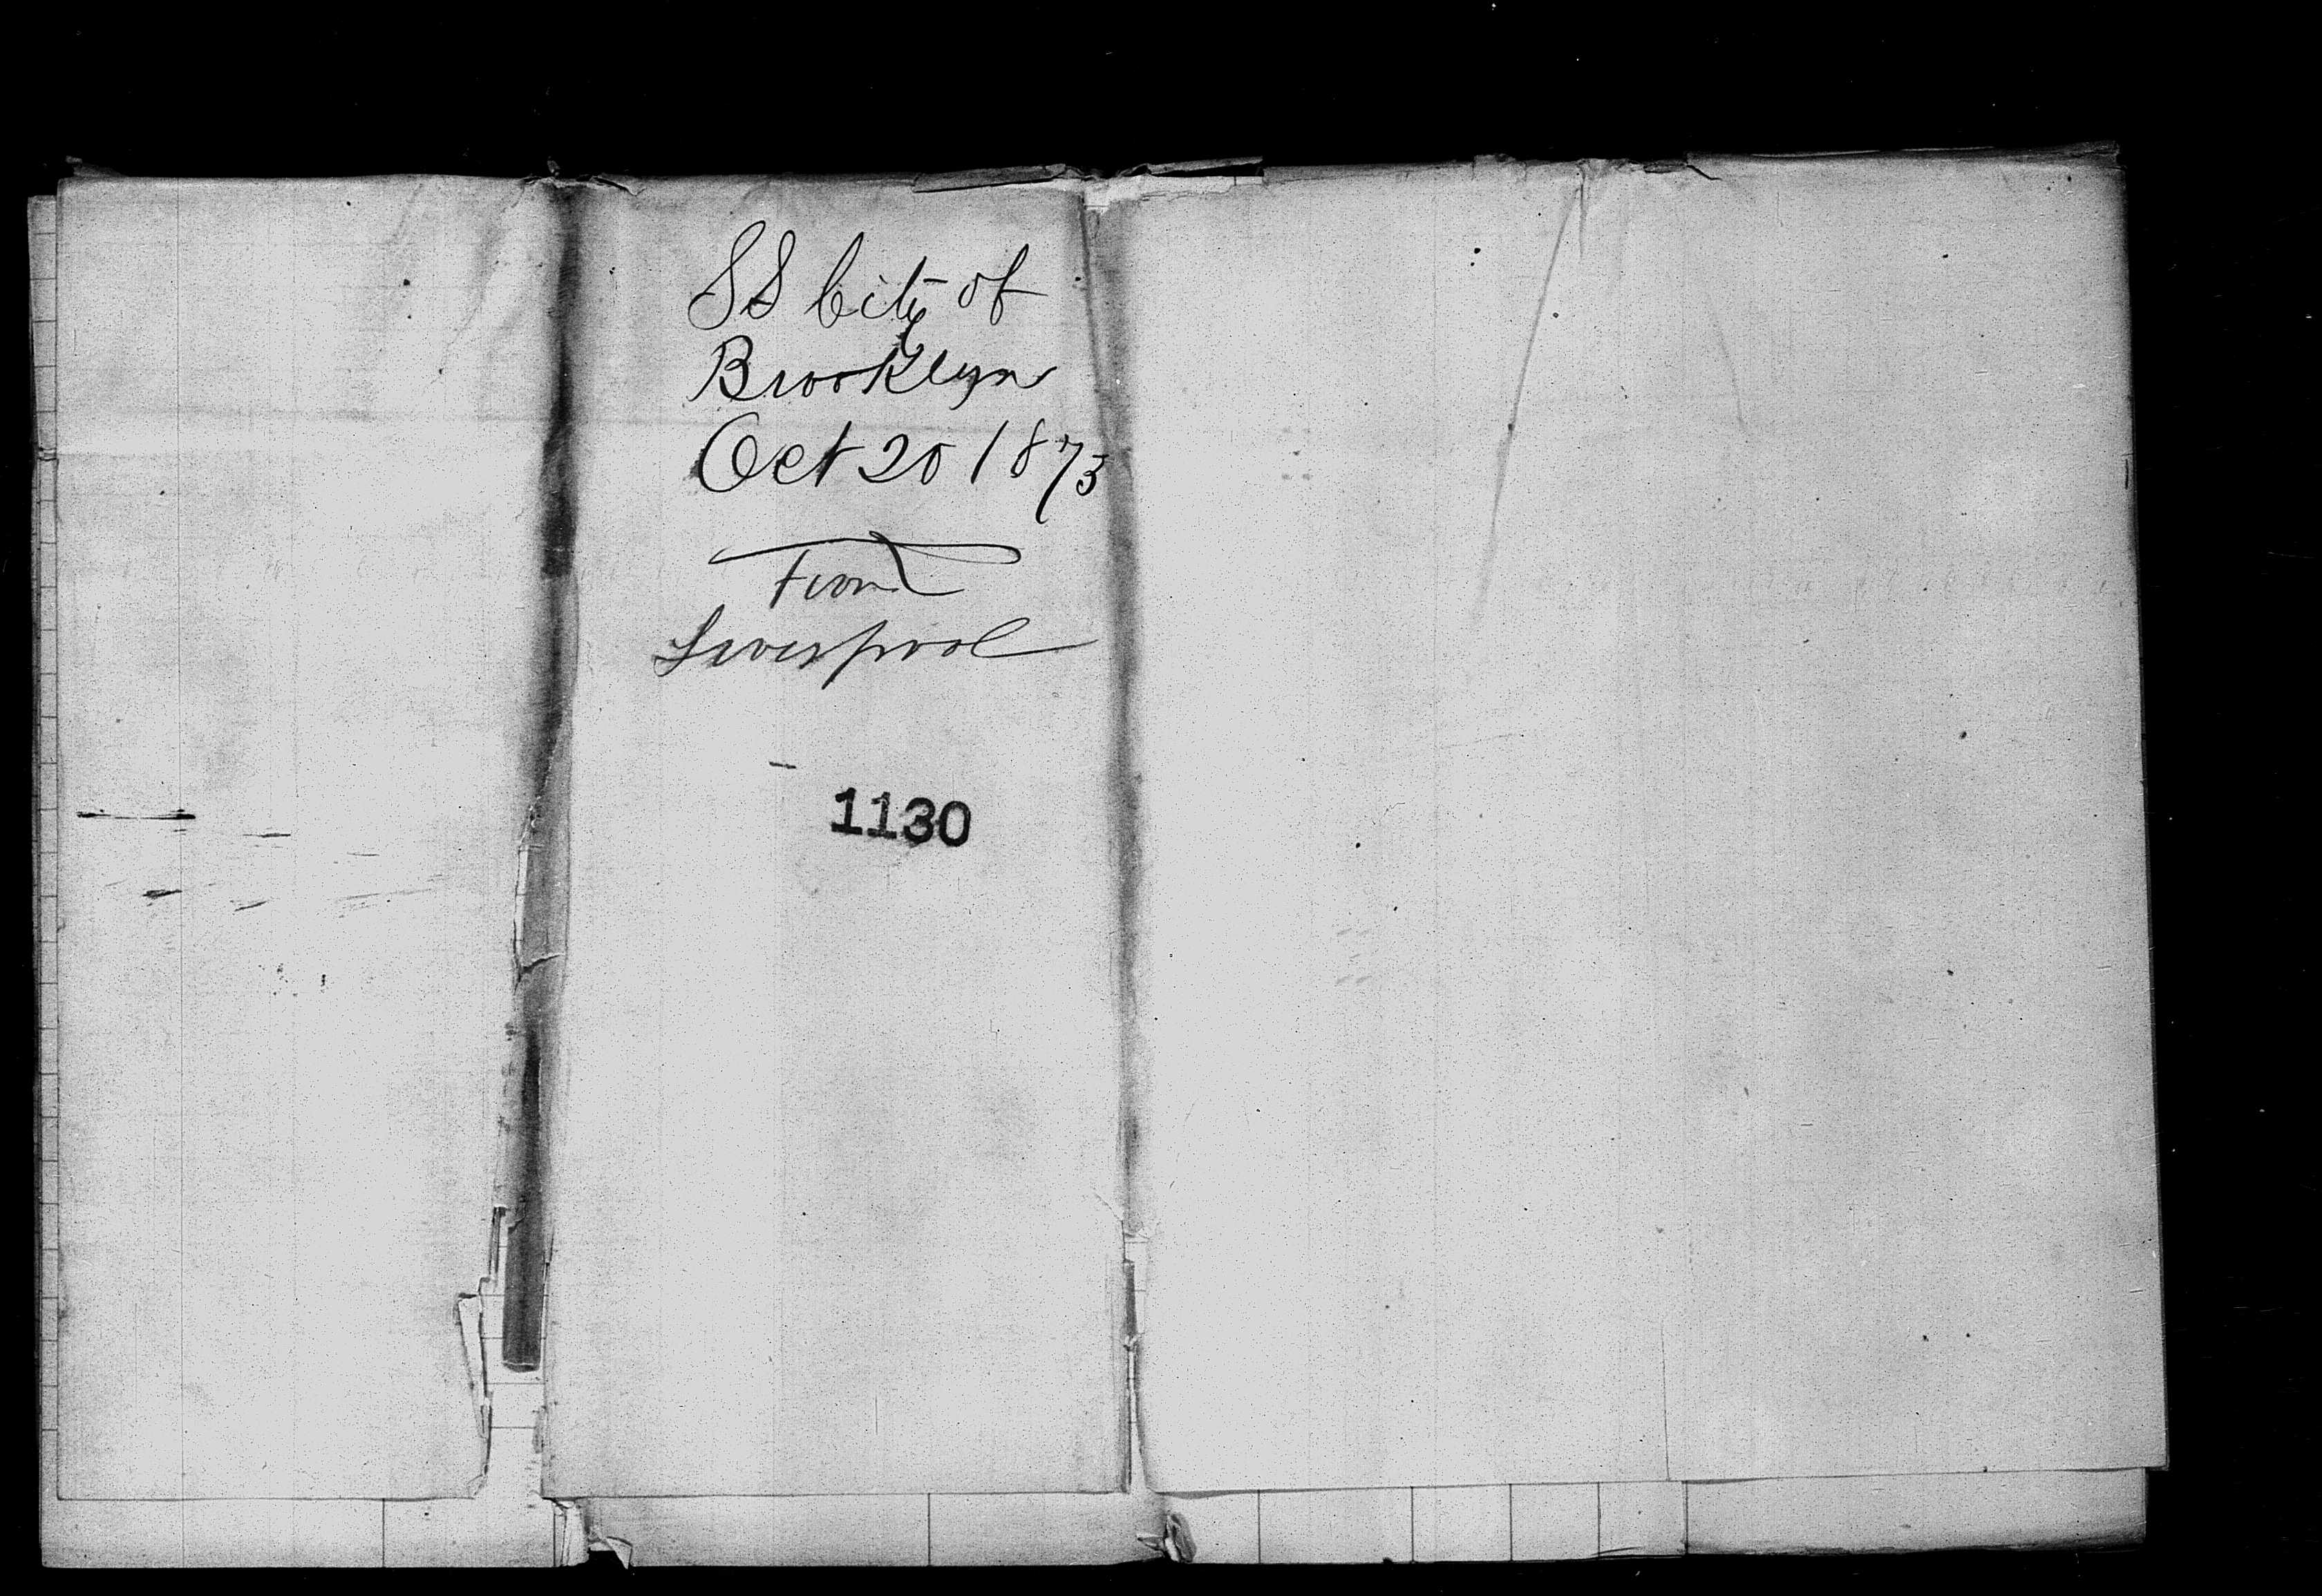 SS City of
Brooklyn
Oct 20 1873
From
Liverpool
1130